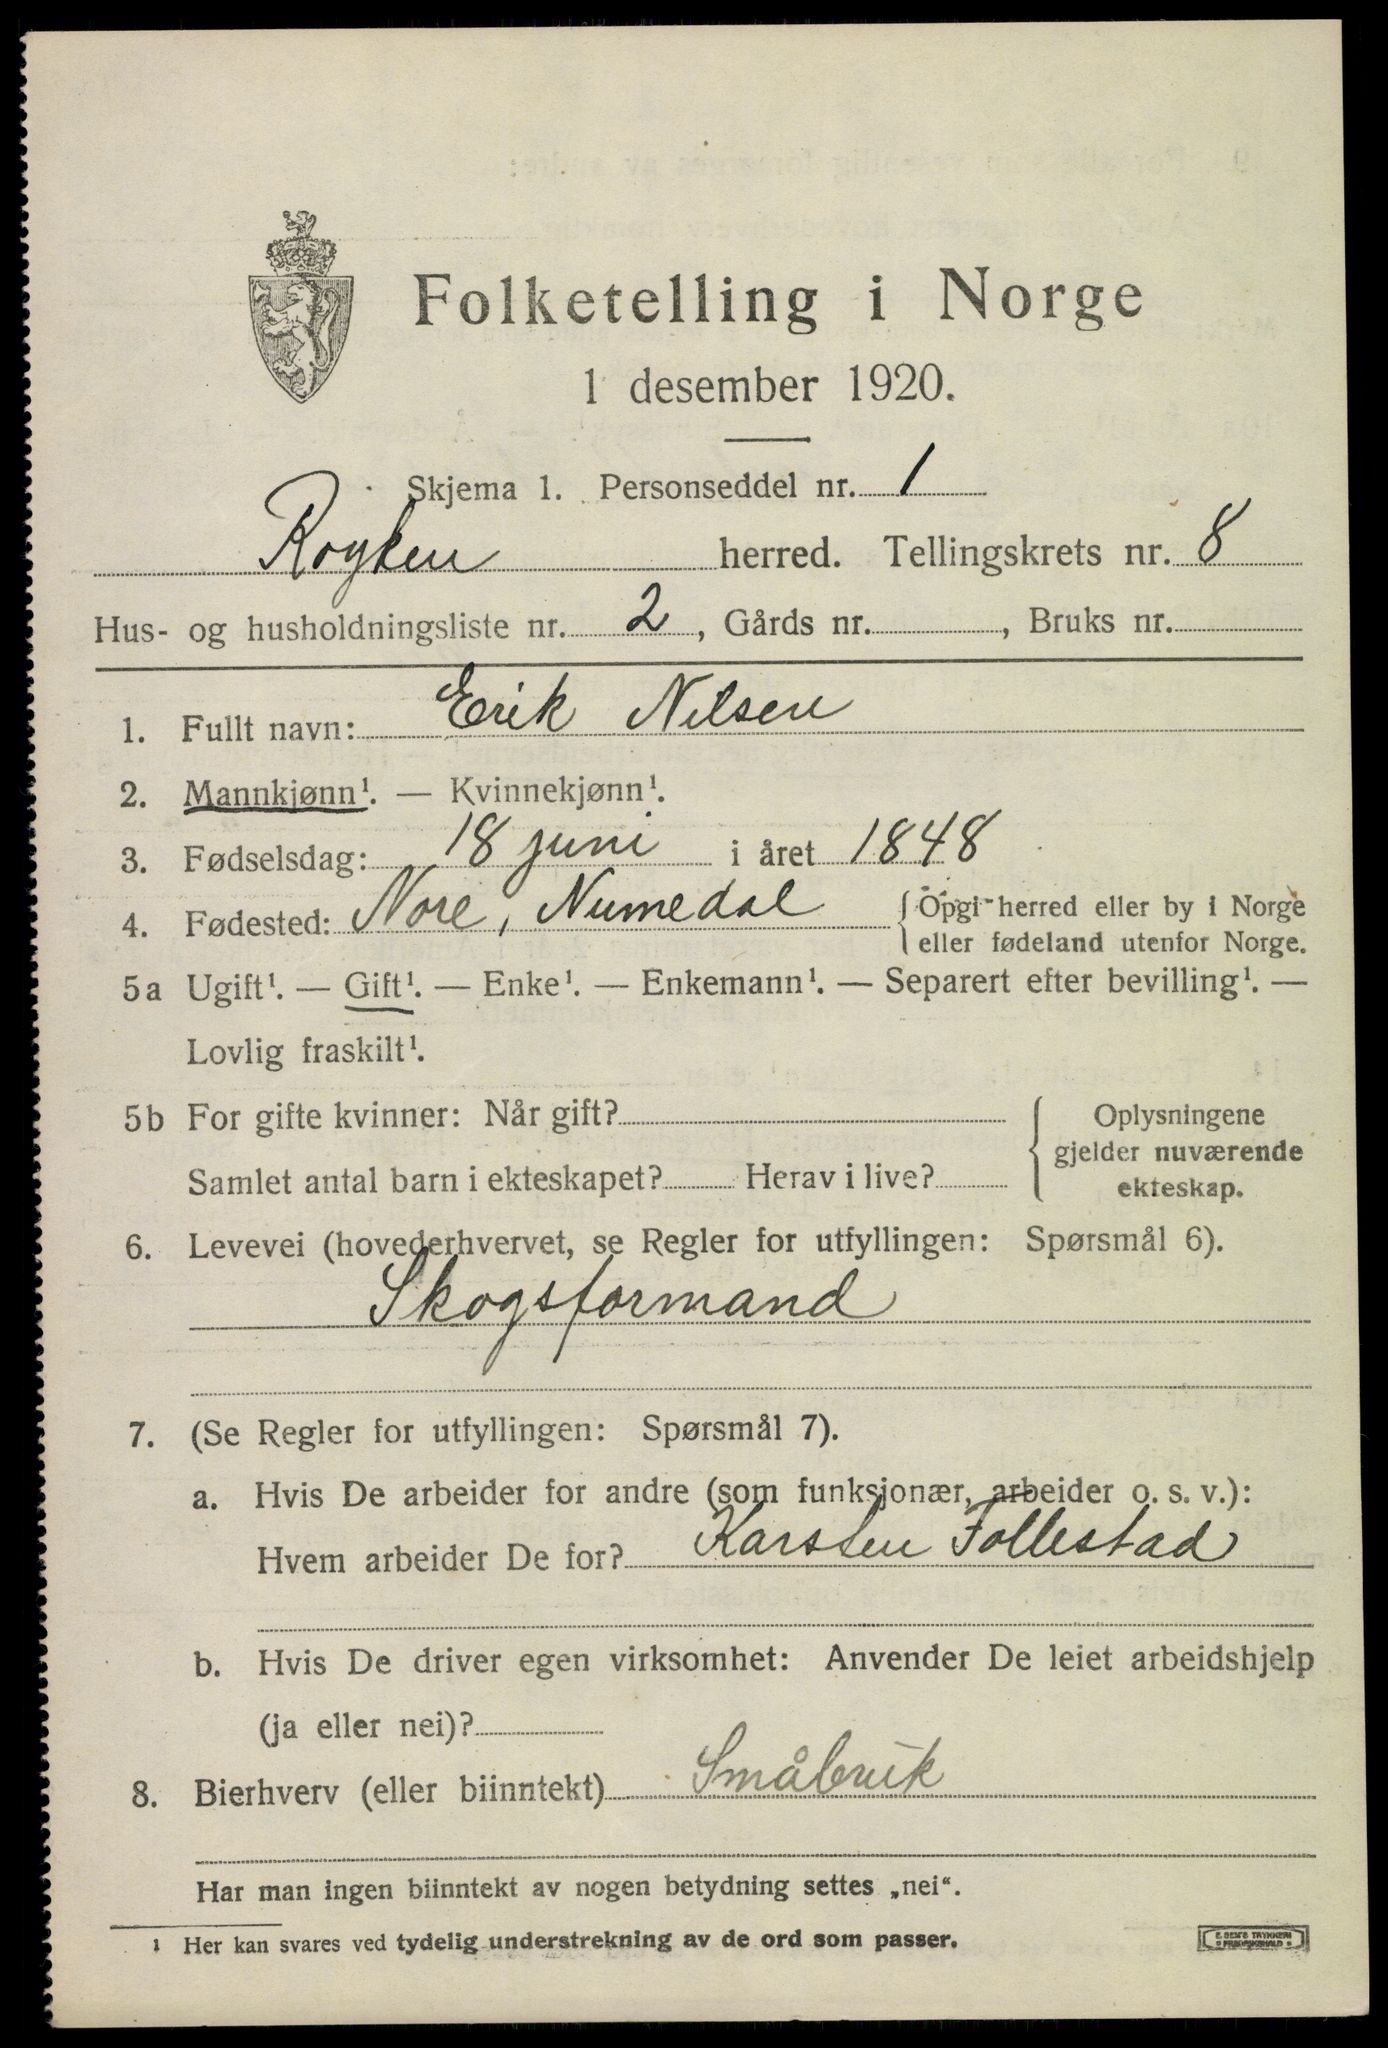 Folketelling i Norge
1 desember 1920.
Skjema 1. Personseddel nr. 1
Royken herred. Tellingskrets nr. 8
Hus- og husholdningsliste nr. 2, Gårds nr. , Bruks nr.
1. Fullt navn: Erik Nilsen
2. Mannkjønn¹. — Kvinnekjønn¹.
3. Fødselsdag: 18 juni i året 1848
4. Fødested: Nore, Numedal { Opgi herred eller by i Norge
eller fødeland utenfor Norge.
5a Ugift¹. — Gift¹. — Enke¹. — Enkemann¹. — Separert efter bevilling¹. —
Lovlig fraskilt¹.
5b For gifte kvinner: Når gift? { Oplysningene
gjelder nuværende
Samlet antal barn i ekteskapet? Herav i live? ekteskap.
6. Levevei (hovederhvervet, se Regler for utfyllingen: Spørsmål 6).
Skogsformand
7. (Se Regler for utfyllingen: Spørsmål 7).
a. Hvis De arbeider for andre (som funksjonær, arbeider o. s. v.):
Hvem arbeider De for? Karsten Follestad
b. Hvis De driver egen virksomhet: Anvender De leiet arbeidshjelp
(ja eller nei)?
8. Bierhverv (eller biinntekt) Småbruk
Har man ingen biinntekt av nogen betydning settes „nei“.
¹ Her kan svares ved tydelig understrekning av de ord som passer.
E. SEM'S TRYKKERI
FREDRIKSHALD